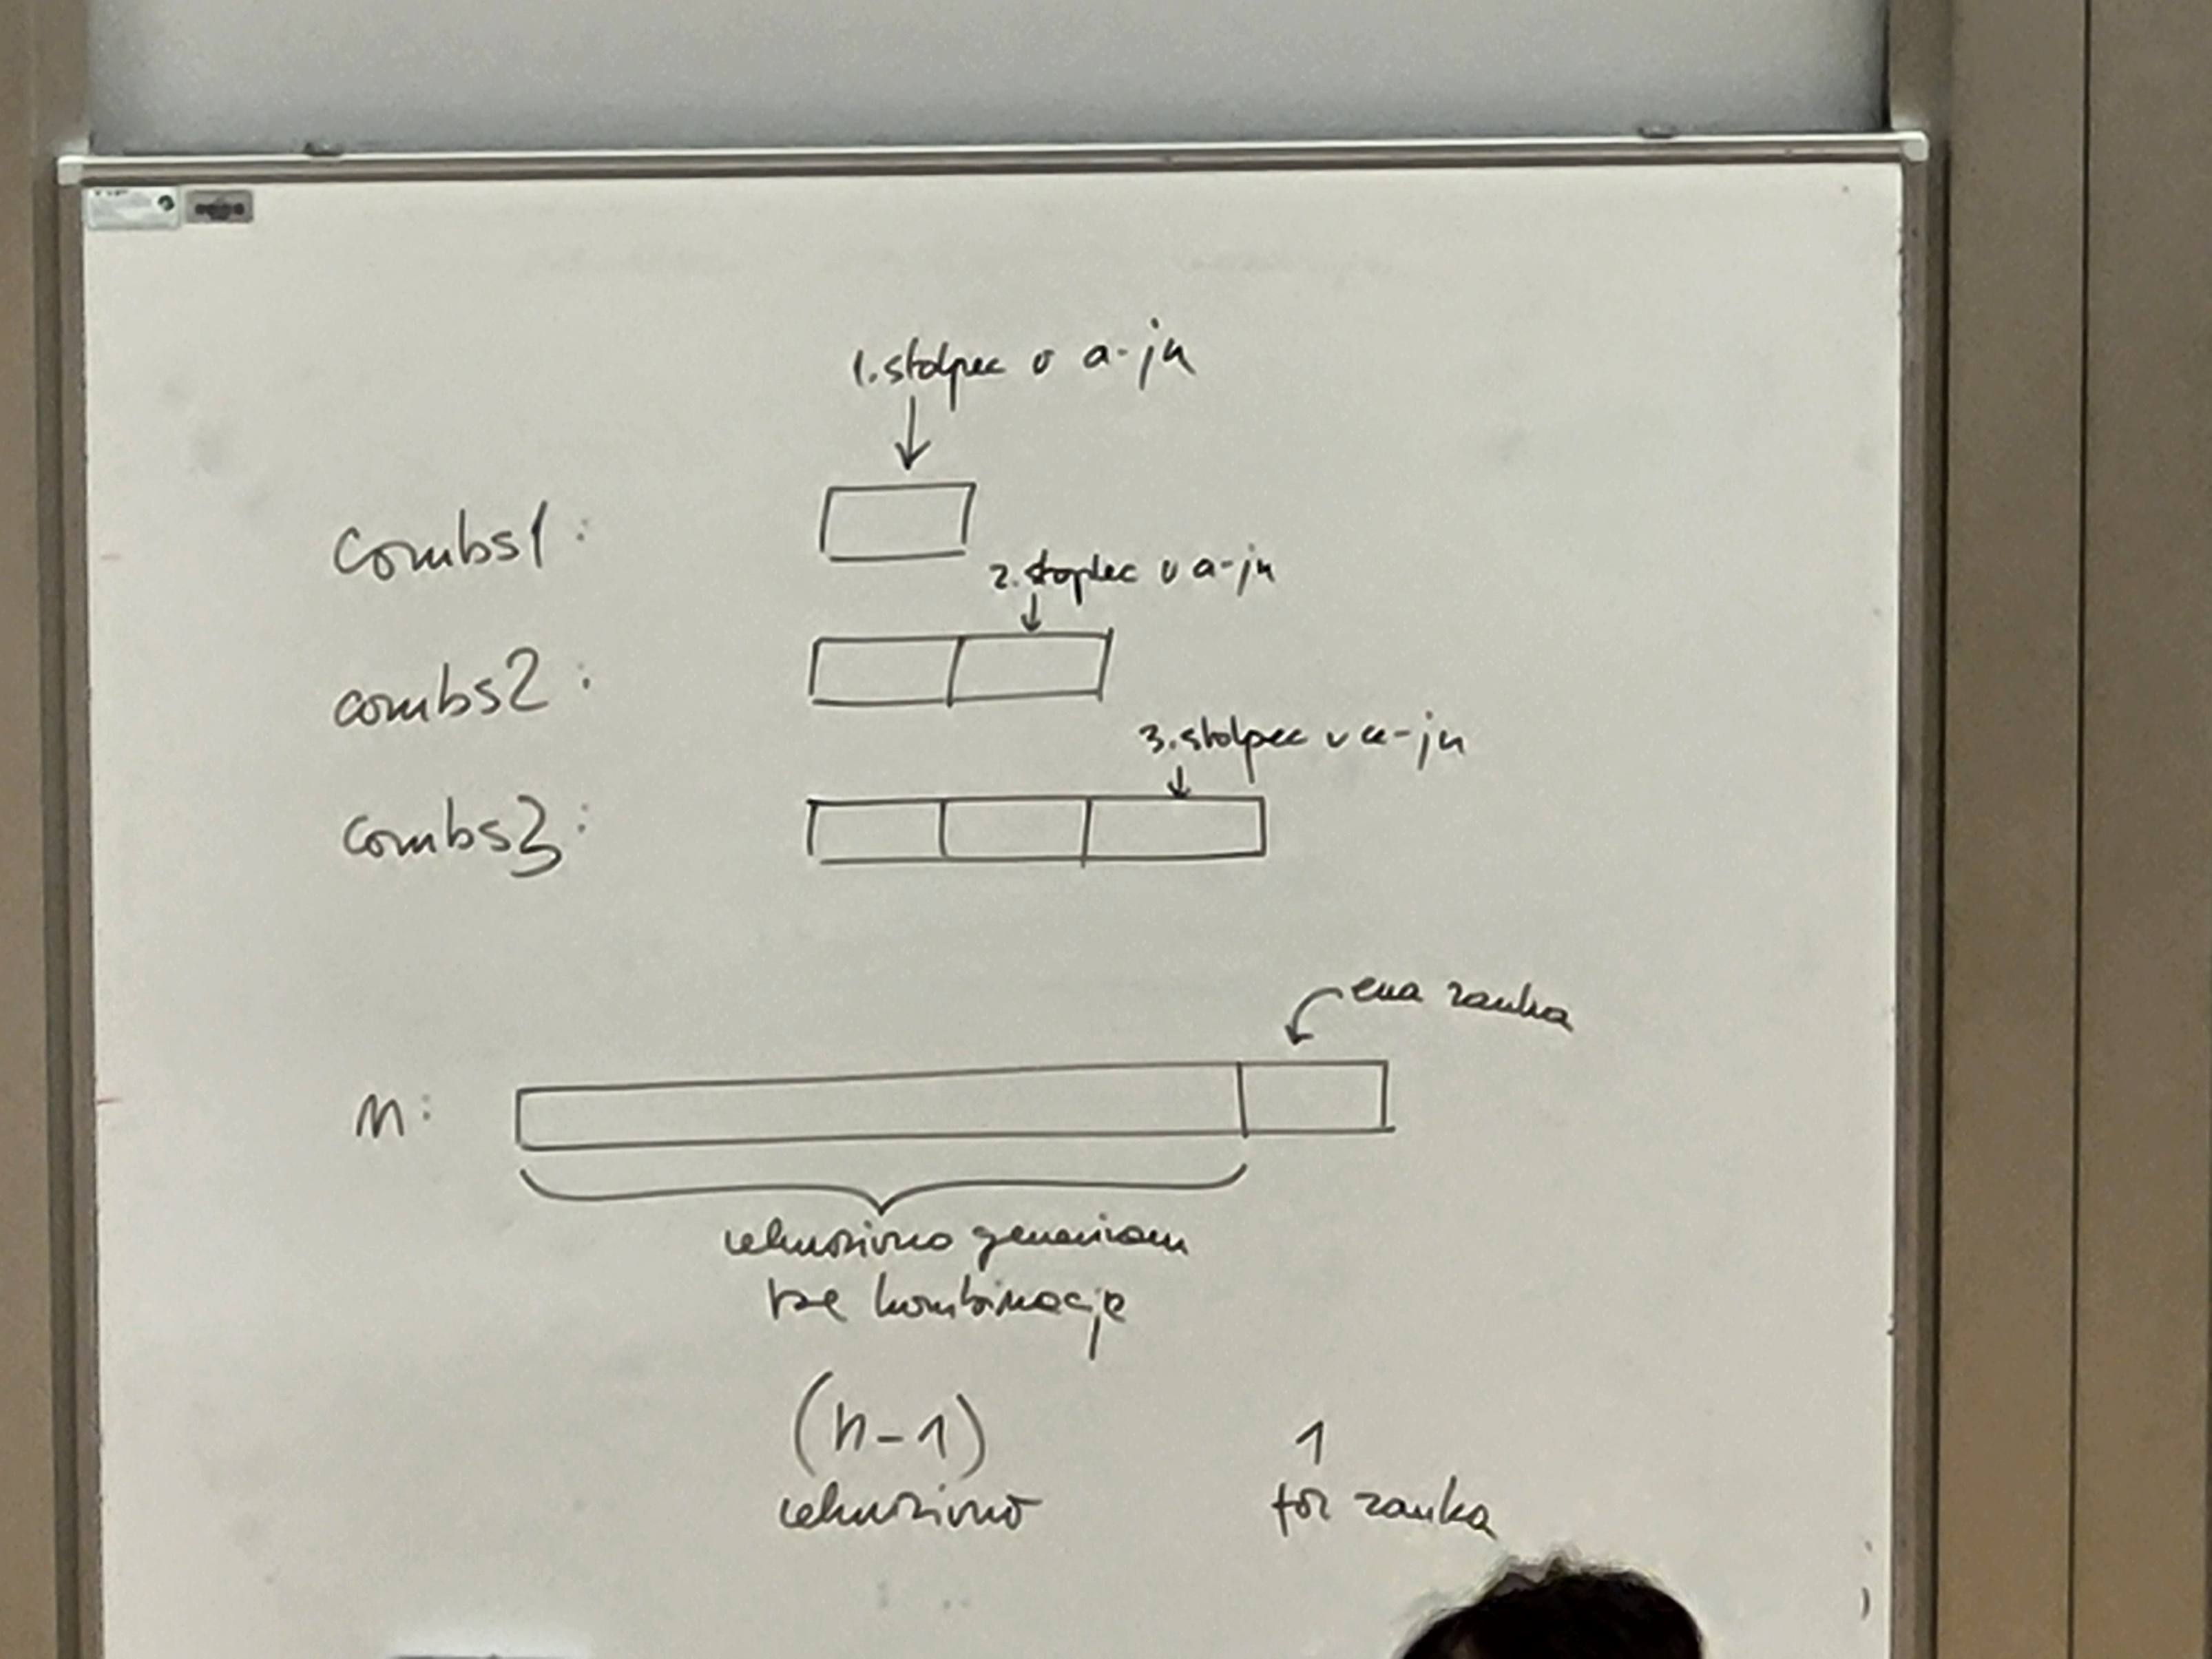 1. stolpec v a-ju
combs1:
2. stoplec v a-ju
combs2:
3. stolpec v a-ju
combs3:
ena zanka
n:
rekurzivno generiram
vse kombinacije
(n-1)
1
rekurzivno
for zanka